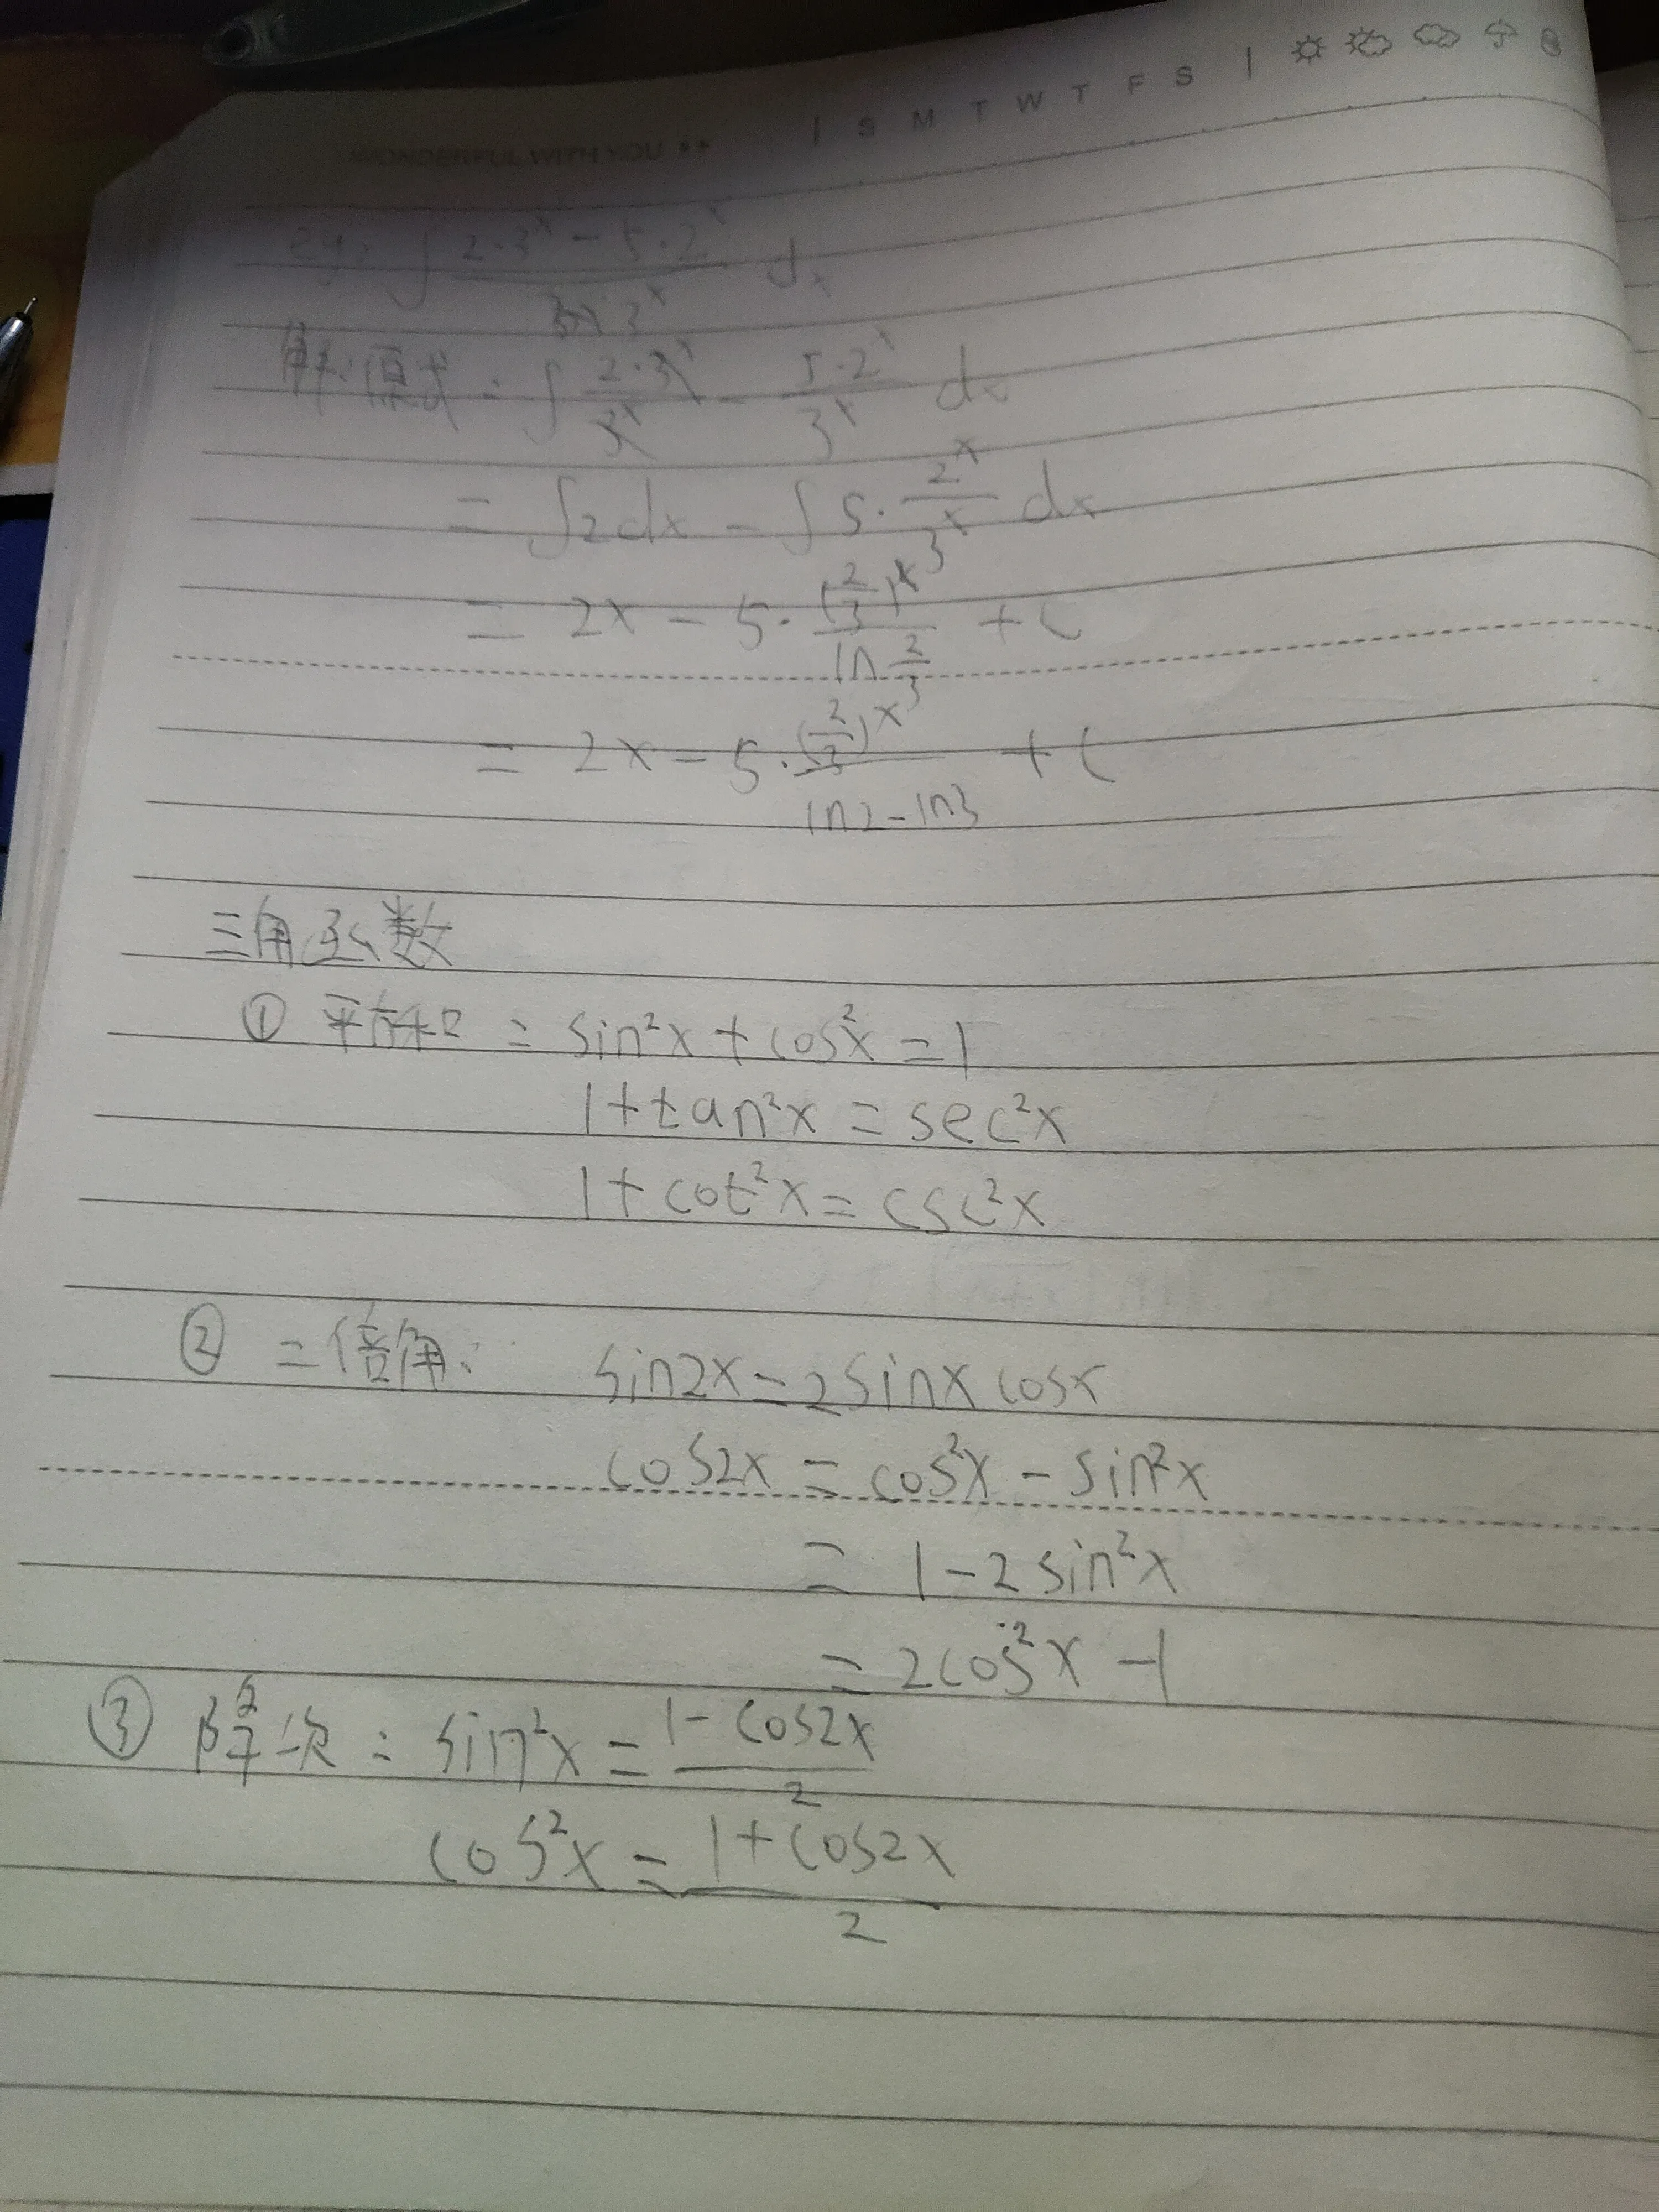 WONDERFUL WITH YOU
| S M T W T F S |
eg: ∫ (2·3^x - 5·2^x)/(3^x) dx
解: 原式 = ∫ (2·3^x)/(3^x) - (5·2^x)/(3^x) dx
= ∫2dx - ∫5·(2^x)/(3^x) dx
= 2x - 5·((2/3)^x)/(ln 2/3) + C
= 2x - 5·((2/3)^x)/(ln2-ln3) + C
三角函数
① 平方和: sin²x + cos²x = 1
1+tan²x = sec²x
1+cot²x = csc²x
② 二倍角: sin2x = 2sinx cosx
cos2x = cos²x - sin²x
= 1-2sin²x
= 2cos²x -1
③ 降次: sin²x = (1-cos2x)/2
cos²x = (1+cos2x)/2